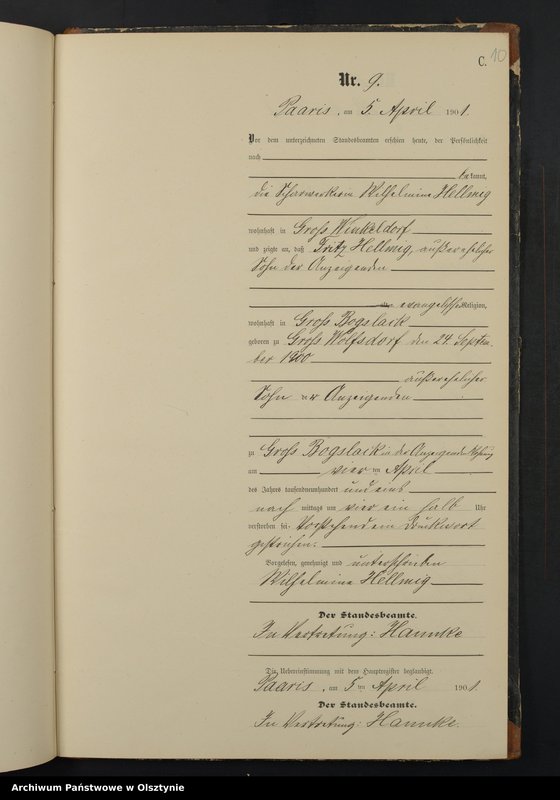 C. 10
Nr. 9.
Paaris, am 5. April 1901.
Vor dem unterzeichneten Standesbeamten erschien heute, der Persönlichkeit
nach
bekannt,
die Scharwerkerin Wilhelmine Hellwig
wohnhaft in Groß Winkeldorf
und zeigte an, daß Fritz Hellwig, außerehelicher
Sohn der Anzeigenden
evangelischer Religion,
wohnhaft in Groß Bogslack
geboren zu Groß Wolfsdorf den 24. Septem-
ber 1900
außerehelicher
Sohn der Anzeigenden
zu Groß Bogslack in der Anzeigenden Wohnung
am vierten April
des Jahres tausendneunhundert und eins
nachmittags um vier ein halb Uhr
verstorben sei. Vorstehend ein Druckwort
gestrichen.
Vorgelesen, genehmigt und unterschrieben
Wilhelmine Hellwig
Der Standesbeamte.
In Vertretung: Hannke
Die Uebereinstimmung mit dem Hauptregister beglaubigt.
Paaris, am 5ten April 1901.
Der Standesbeamte.
In Vertretung: Hannke.
Archiwum Państwowe w Olsztynie